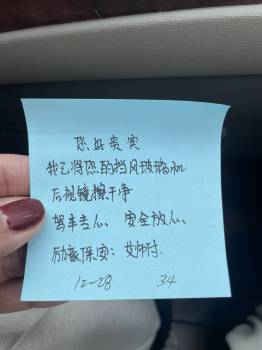 您好贵宾
我已将您的挡风玻璃和
后视镜擦干净
驾车专心、安全放心、
励豪保安：艾师付.
12-28 34